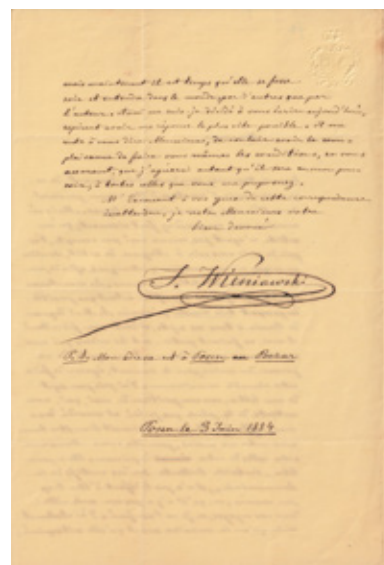 mais maintenant il est temps qu'elle se fasse
voir et entendre dans le monde par d'autres que par
l'auteur. Ainsi me suis-je décidé à vous écrire aujourd'hui,
espérant avoir une réponse le plus vite possible. Il me
reste à vous dire Messieurs, de vouloir avoir la com-
plaisance de faire vous mêmes les conditions, en vous
assurant, que j'agréerai autant qu'il sera en mon pou-
voir, à toutes celles que vous me proposerez.
de cette correspondance
inattendue, je reste Messieurs votre
bien dévoué
J. Wieniawski
P.S. Mon adresse est à Posen au Bazar
Posen le 3 Juin 1854